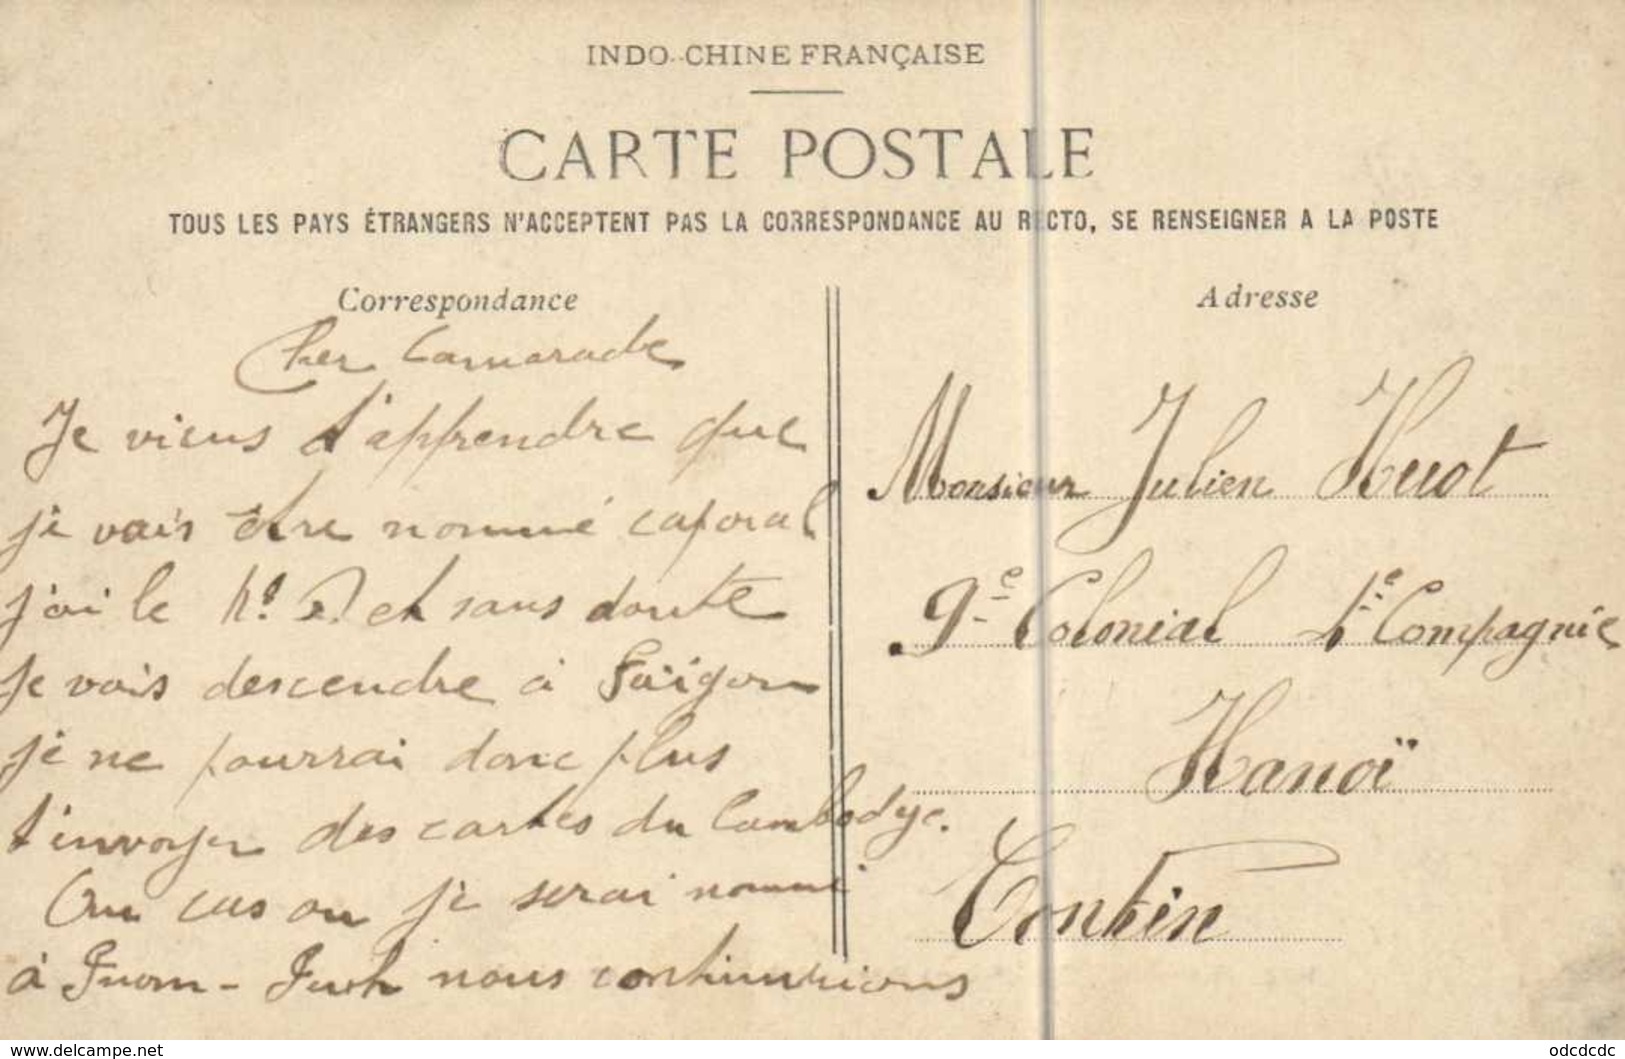 INDO-CHINE FRANÇAISE
CARTE POSTALE
TOUS LES PAYS ÉTRANGERS N'ACCEPTENT PAS LA CORRESPONDANCE AU RECTO, SE RENSEIGNER A LA POSTE
Correspondance
Cher Camarade
Je viens d'apprendre que
je vais être nommé caporal
j'ai le et sans doute
je vais descendre à Saïgon
je ne pourrai donc plus
t'envoyer des cartes du Cambodge.
Au cas ou je serai nommé
à nous continuerions
Adresse
Monsieur Julien Huot
9e Colonial 1e Compagnie
Hanoï
Tonkin
www.delcampe.net
odcdcdc